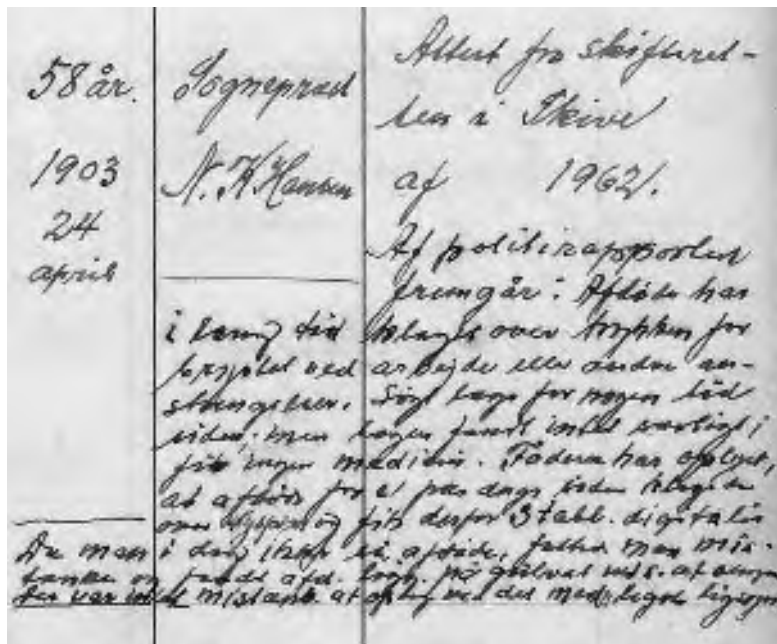 58 år.
1903
24
april
Sognepræst
N. K. Hansen
Attest fra skifteret-
ten i Skive
af 1962.
Af politirapporten
fremgår: Afdøde har
i lang tid klaget over trykken for
brystet ved arbejde eller andre an-
strengelser. Søgt læge for nogen tid
siden, men lægen fandt intet varligt,
fik ingen medicin. Faderen har oplyst,
at afdøde for et par dage siden klagede
over og fik derfor 3 tabl. digitalis
Da man i dag ikke så afdøde, fattede man mis-
tanke og fandt afd. ligg. på gulvet
der var intet mistænk. at ved det